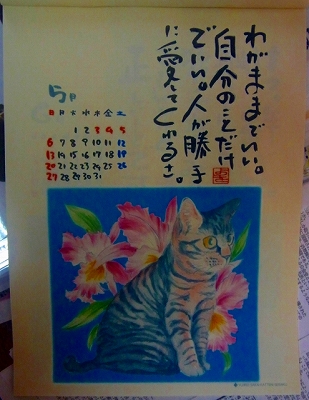 わがままでいい。
自分のことだけ
でいい。人が勝手
に愛してくれるさ。
5月
日 月 火 水 木 金 土
1 2 3 4 5
6 7 8 9 10 11 12
13 14 15 16 17 18 19
20 21 22 23 24 25 26
27 28 29 30 31